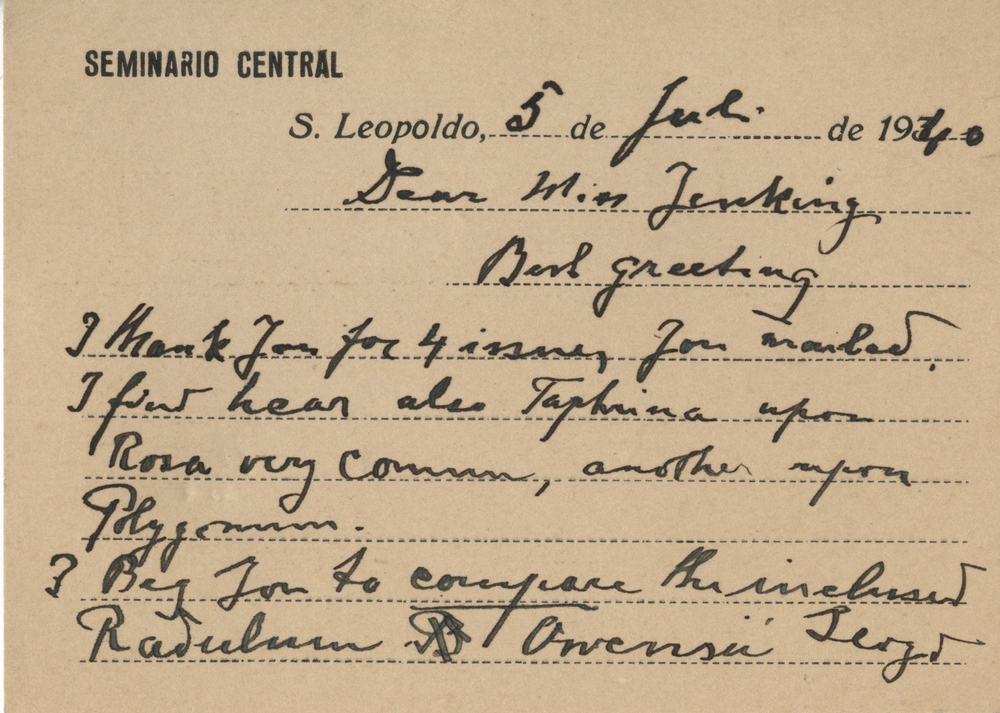 SEMINARIO CENTRAL
S. Leopoldo, 5 de Juli de 1940
Dear Miss Jenking
Best greeting
I thank You for 4 issues You mailed.
I find hear also Taphrina upon
Rosa very Comun, another upon
Polygonum.
I Beg You to compare the inclused
Radulum Owensii Lloyd